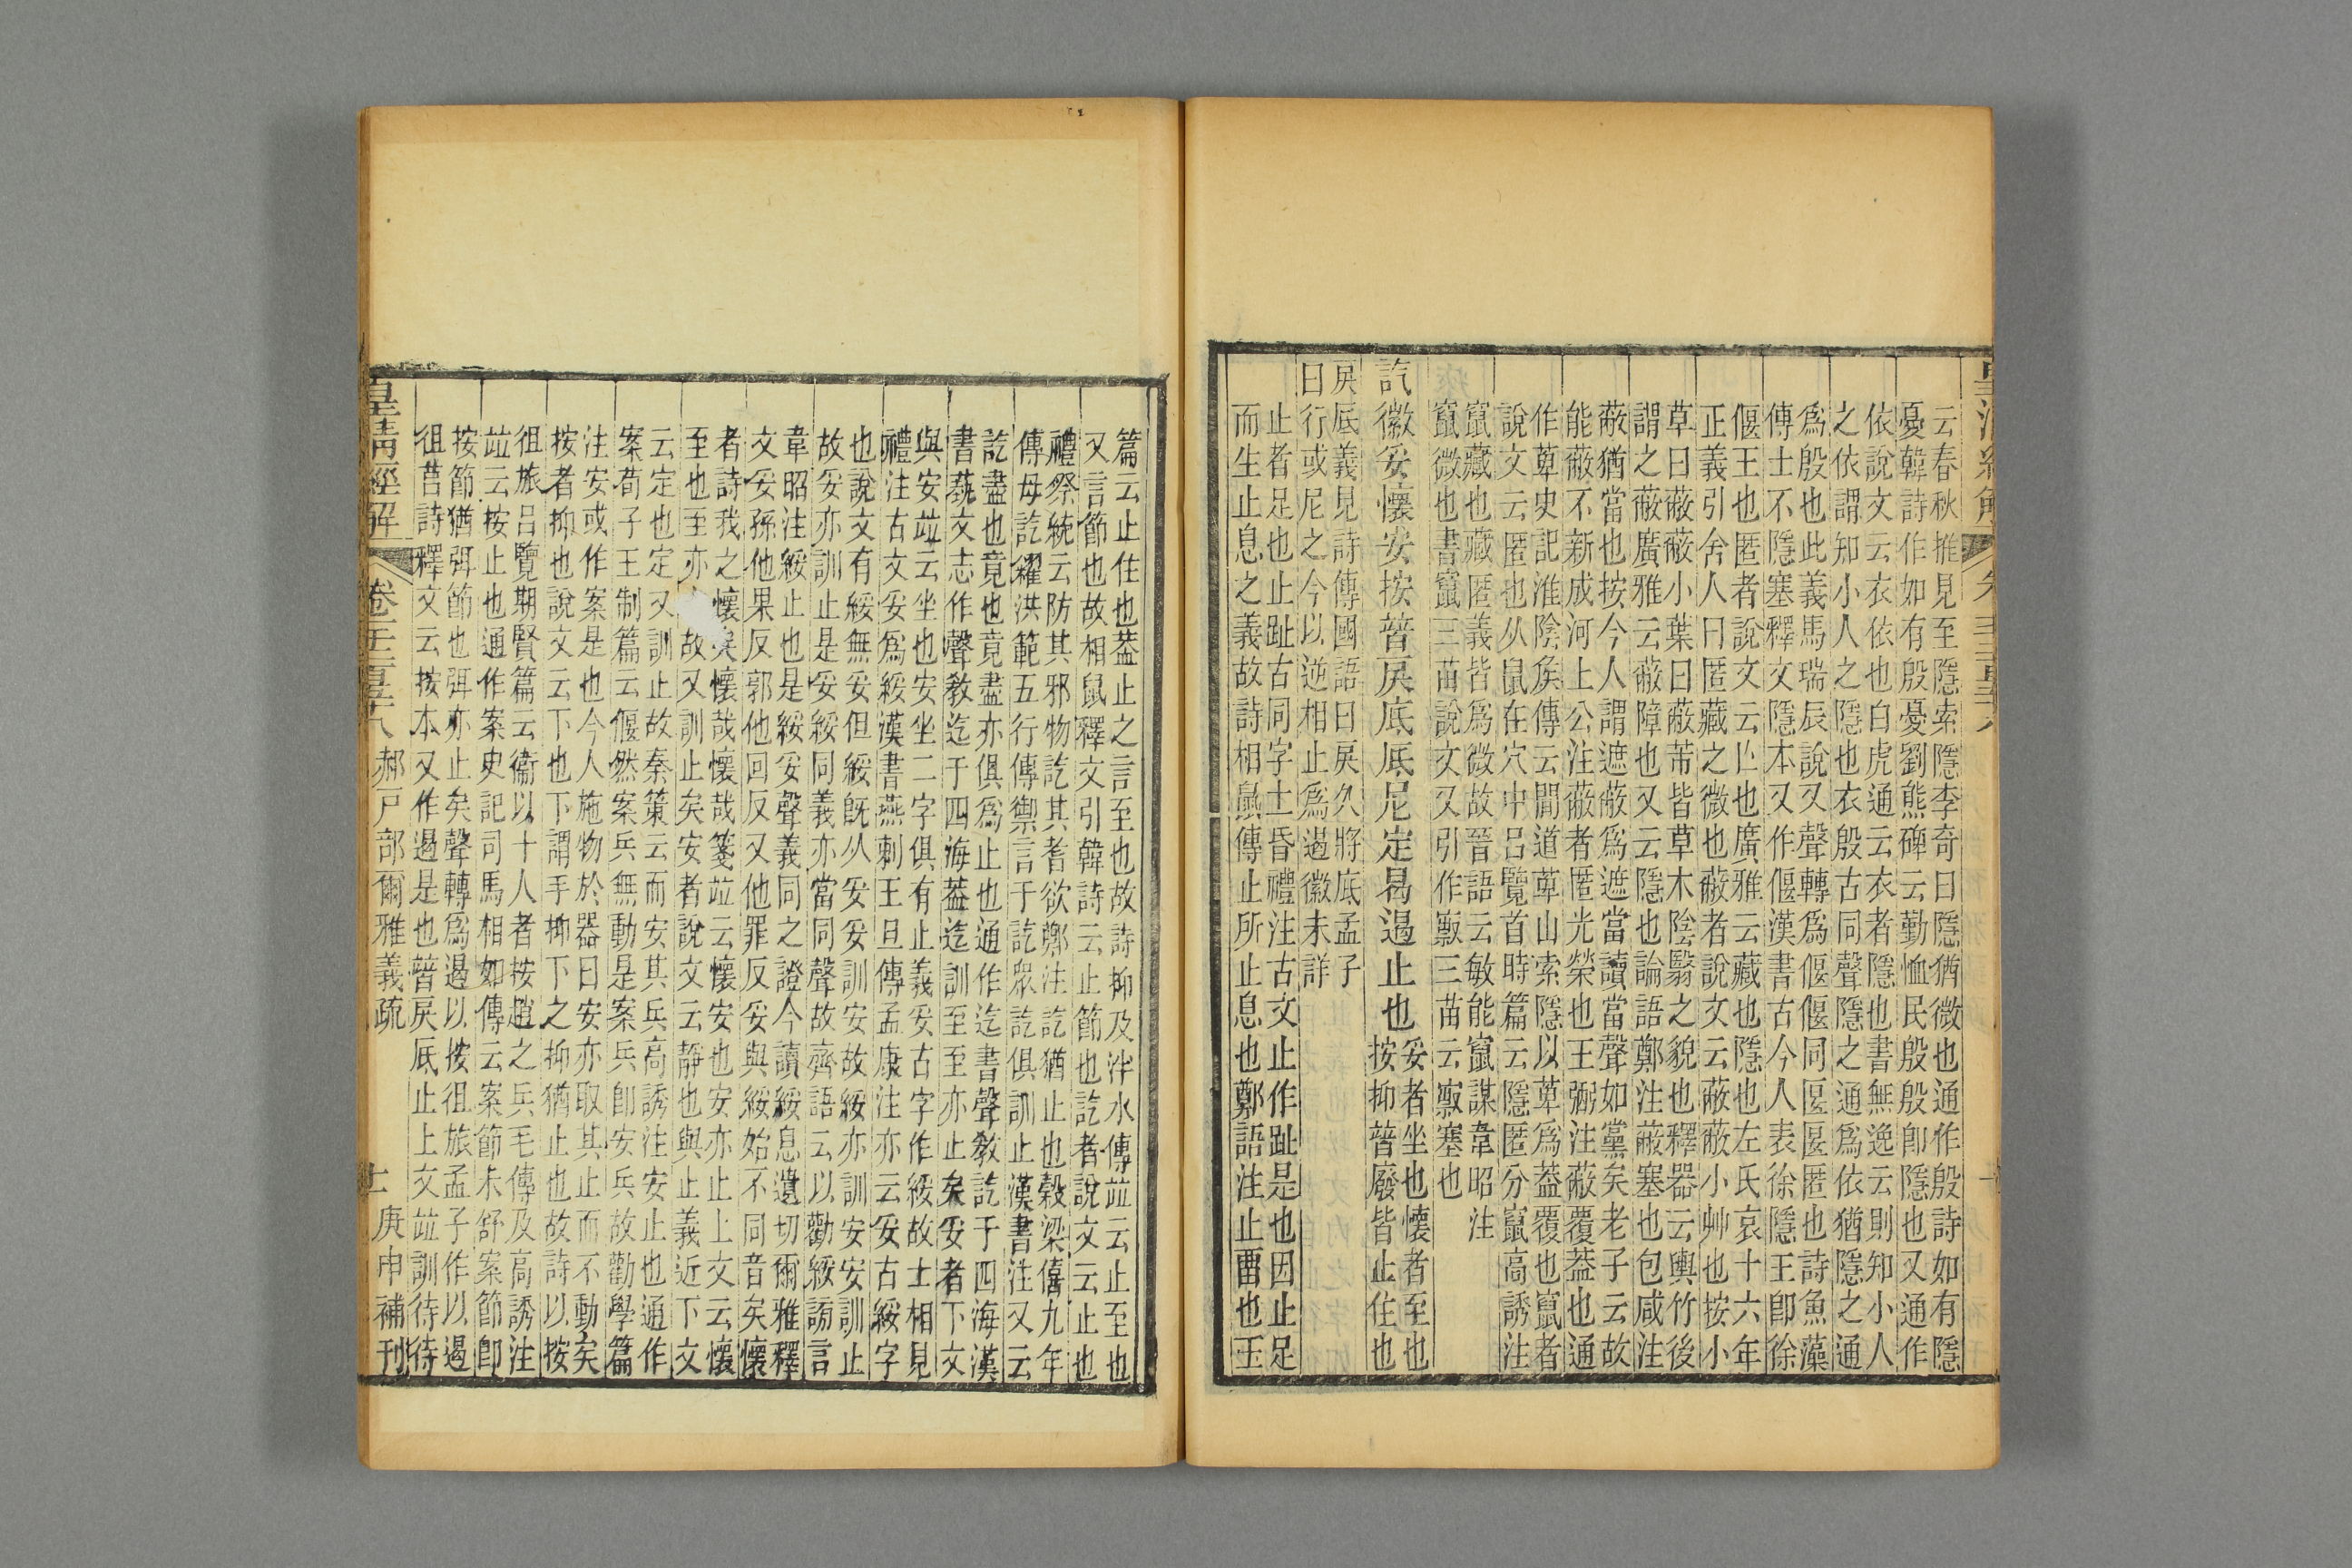 云春秋推見至隱索隱李奇曰隱猶微也通作殷詩如有隱
憂韓詩作如有殷憂劉熊碑云勤恤民殷殷卽隱也又通作
依說文云衣依也白虎通云衣者隱也書無逸云則知小人
之依謂知小人之隱也衣殷古同聲隱之通爲依猶隱之通
爲殷也此義馬瑞辰說又聲轉爲偃偃同匽匽匿也詩魚藻
傳士不隱塞釋文隱本又作偃漢書古今人表徐隱王卽徐
偃王也匿者說文云亾也廣雅云藏也隱也左氏哀十六年
正義引舍人曰匿藏之微也蔽者說文云蔽蔽小艸也按小
草曰蔽蔽小葉曰蔽芾皆草木陰翳之貌也釋器云輿竹後
謂之蔽廣雅云蔽障也又云隱也論語鄭注蔽塞也包咸注
蔽猶當也按今人謂遮蔽爲遮當讀當聲如黨矣老子云故
能蔽不新成河上公注蔽者匿光榮也王弼注蔽覆蓋也通
作萆史記淮陰矦傳云閒道萆山索隱以萆爲蓋覆也竄者
說文云匿也从鼠在穴中呂覽首時篇云隱匿分竄高誘注
竄藏也藏匿義皆爲微故晉語云敏能竄謀韋昭注
竄微也書竄三苗說文又引作㝮三苗云㝮塞也
訖徽妥懷安按朁戾底厎尼定曷遏止也
妥者坐也懷者至也
按抑朁廢皆止住也
戾底義見詩傳國語曰戾久將底孟子
曰行或尼之今以逆相止爲遏徽未詳
止者足也止趾古同字士昏禮注古文止作趾是也因止足
而生止息之義故詩相鼠傳止所止息也鄭語注止畱也玉
篇云止住也葢止之言至也故詩抑及泮水傳竝云止至也
又言節也故相鼠釋文引韓詩云止節也訖者說文云止也
禮祭統云防其邪物訖其耆欲鄭注訖猶止也穀梁僖九年
傳毋訖糴洪範五行傳禦言于訖衆訖俱訓止漢書注又云
訖盡也竟也竟盡亦俱爲止也通作迄書聲教訖于四海漢
書蓺文志作聲教迄于四海葢迄訓至至亦止矣妥者下文
與安竝云坐也安坐二字俱有止義妥古字作綏故士相見
禮注古文妥爲綏漢書燕剌王旦傳孟康注亦云妥古綏字
也說文有綏無妥但綏旣从妥妥訓安故綏亦訓安安訓止
故妥亦訓止是妥綏同義亦當同聲故齊語云以勸綏謗言
韋昭注綏止也是綏妥聲義同之證今讀綏息遺切爾雅釋
文妥孫他果反郭他回反又他罪反妥與綏始不同音矣懷
者詩我之懷矣懷哉懷哉箋竝云懷安也安亦止上文云懷
至也至亦故又訓止矣安者說文云靜也與止義近下文
云定也定又訓止故秦策云而安其兵高誘注安止也通作
案荀子王制篇云偃然案兵無動是案兵卽安兵故勸學篇
注安或作案是也今人施物於器曰安亦取其止而不動矣
按者抑也說文云下也下謂手抑下之抑猶止也故詩以按
徂旅呂覽期賢篇云衞以十人者按趙之兵毛傳及高誘注
竝云按止也通作案史記司馬相如傳云案節未舒案節卽
按節猶弭節也弭亦止矣聲轉爲遏以按徂旅孟子作以遏
徂莒詩釋文云按本又作遏是也朁戾厎止上文竝訓待待
皇清經解 卷 郝戸部爾雅義疏 庚申補刊